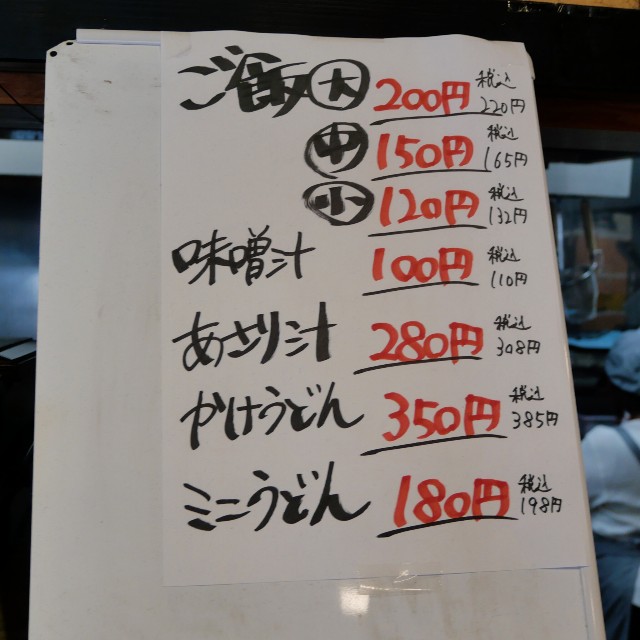 ご飯 大 200円 税込 220円
中 150円 税込 165円
小 120円 税込 132円
味噌汁 100円 税込 110円
あさり汁 280円 税込 308円
かけうどん 350円 税込 385円
ミニうどん 180円 税込 198円